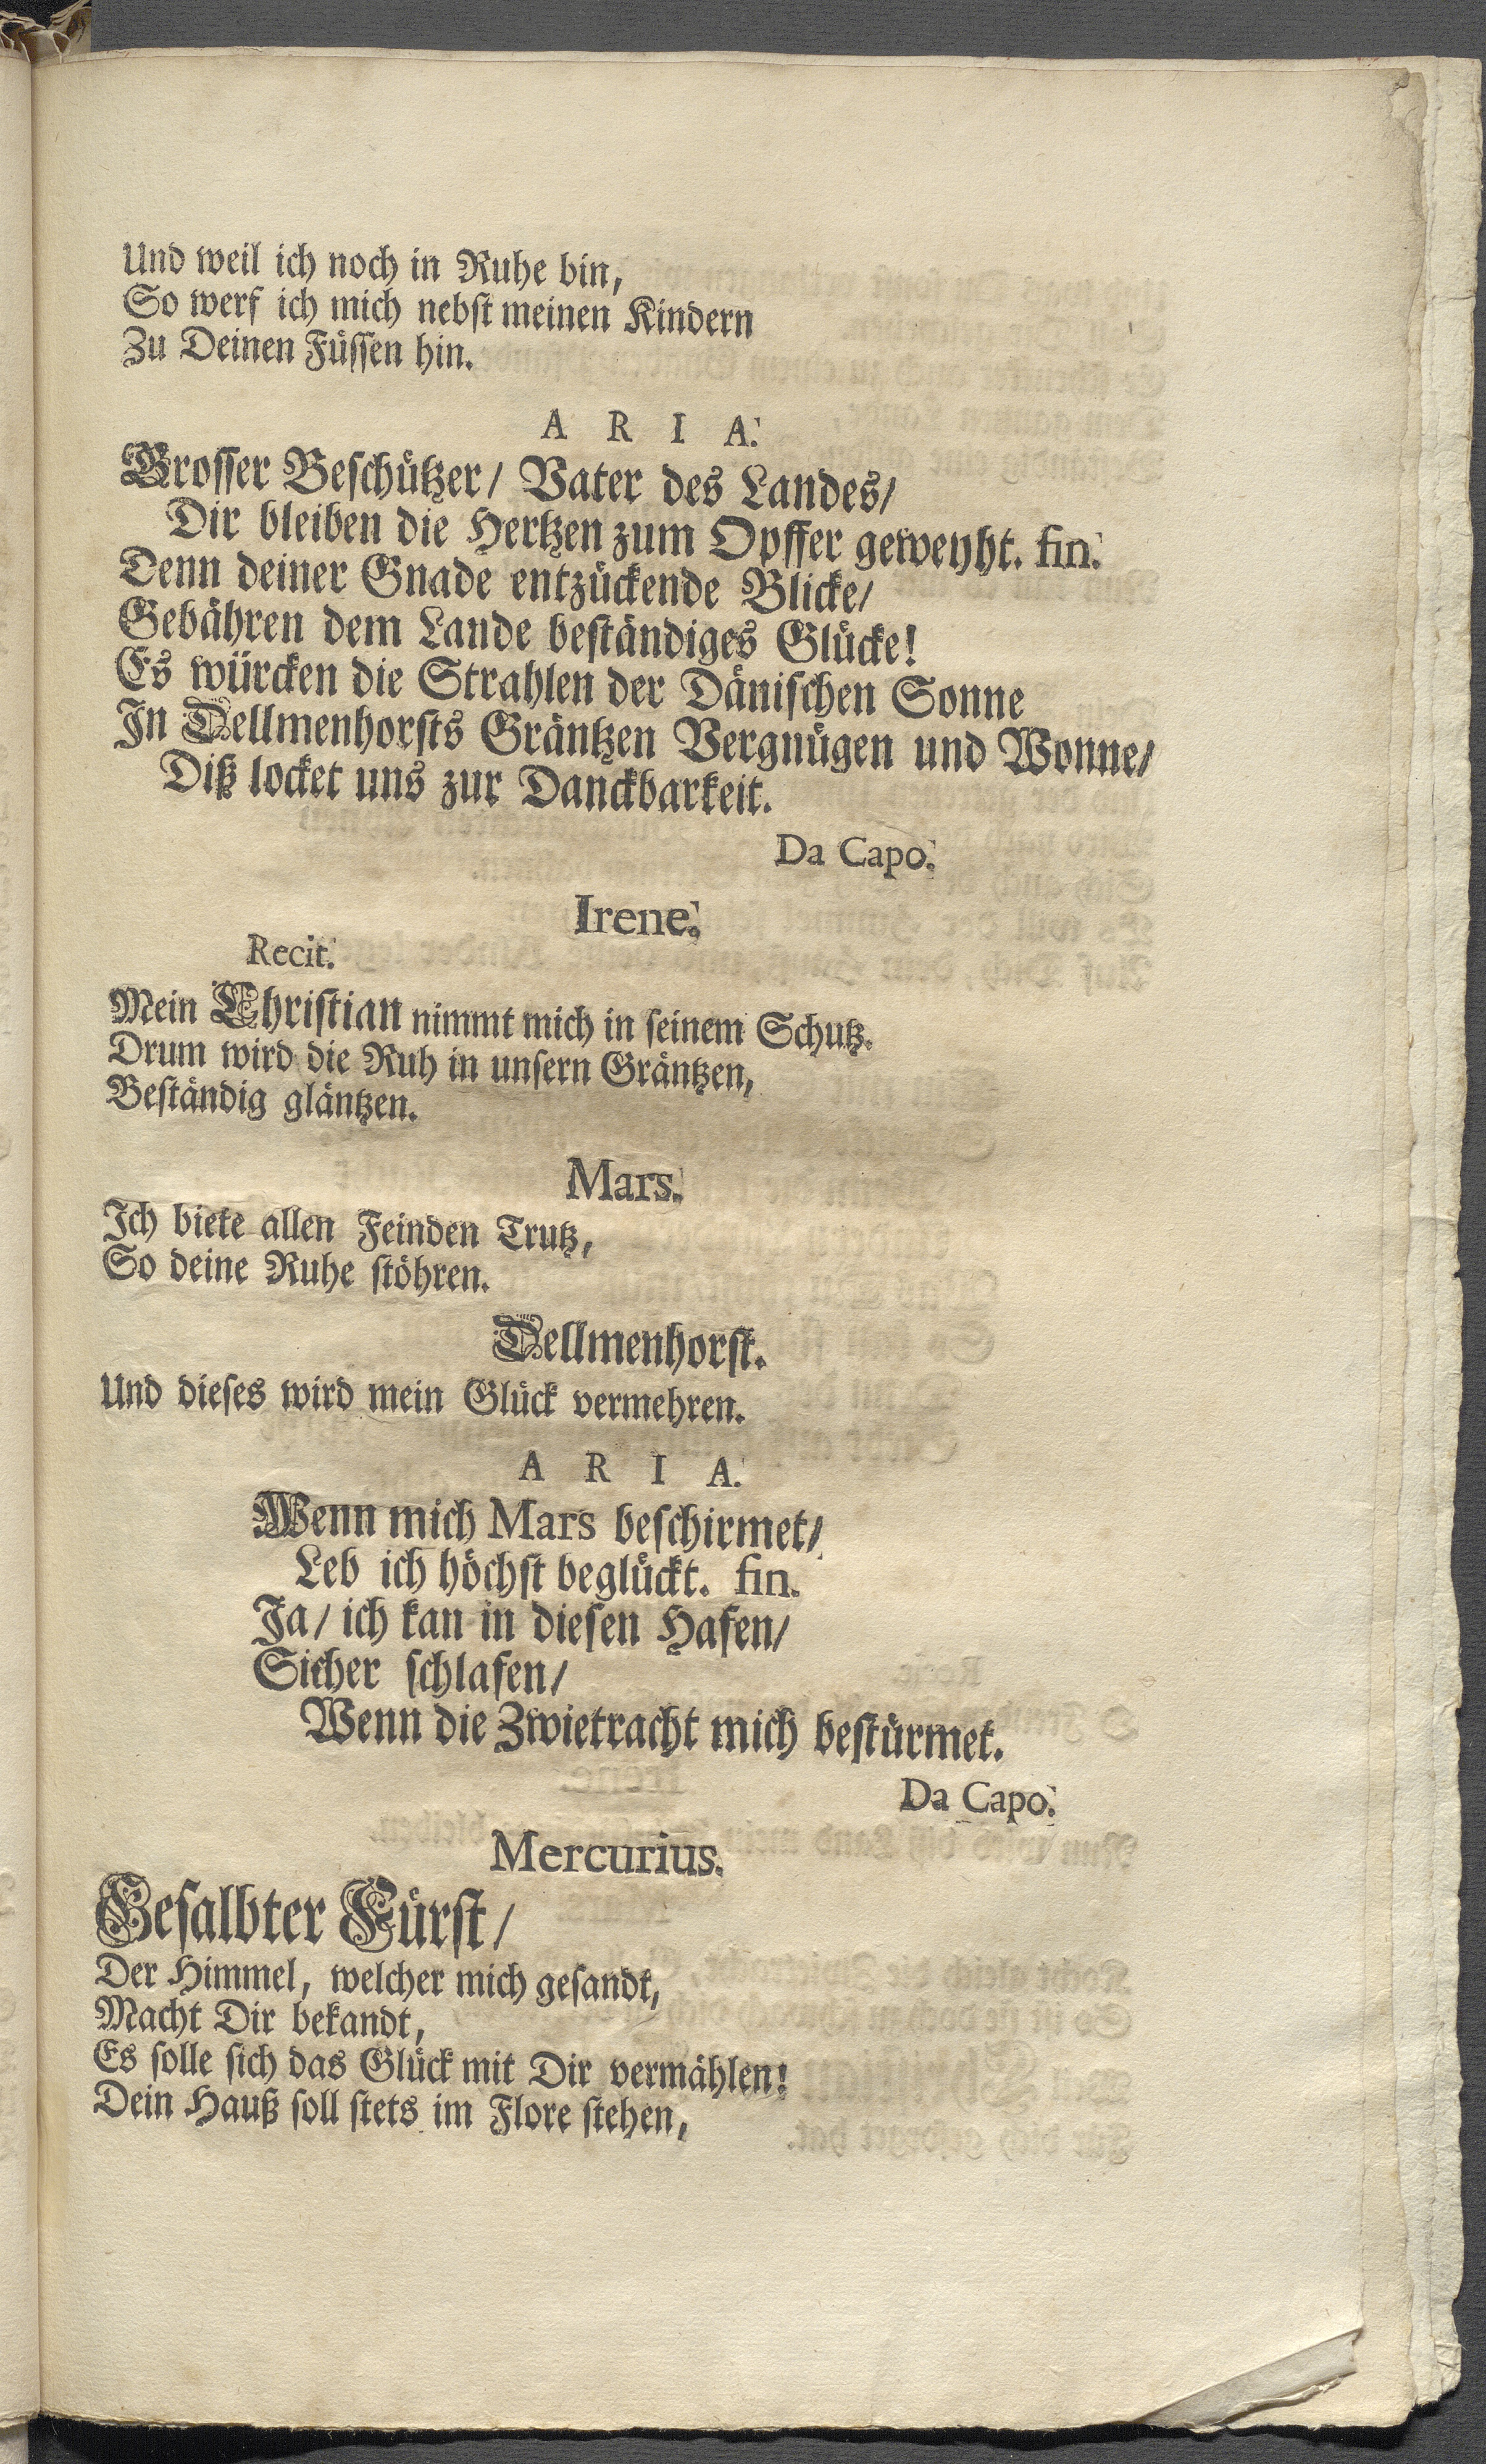 Und weil ich noch in Ruhe bin,
So werf ich mich nebst meinen Kindern
Zu Deinen Füssen hin.
A R I A.
Grosser Beschützer/ Vater des Landes/
Dir bleiben die Hertzen zum Opffer geweyht. fin.
Denn deiner Gnade entzückende Blicke/
Gebähren dem Lande beständiges Glücke!
Es würcken die Strahlen der Dänischen Sonne
In Dellmenhorsts Gräntzen Vergnügen und Wonne/
Diß locket uns zur Danckbarkeit.
Da Capo.
Irene.
Recit.
Mein Christian nimmt mich in seinem Schutz.
Drum wird die Ruh in unsern Gräntzen,
Beständig gläntzen.
Mars.
Ich biete allen Feinden Trutz,
So deine Ruhe stöhren.
Dellmenhorst.
Und dieses wird mein Glück vermehren.
A R I A.
Wenn mich Mars beschirmet/
Leb ich höchst beglückt. fin.
Ja/ ich kan in diesen Hafen/
Sicher schlafen/
Wenn die Zwietracht mich bestürmet.
Da Capo.
Mercurius.
Gesalbter Fürst/
Der Himmel, welcher mich gesandt,
Macht Dir bekandt,
Es solle sich das Glück mit Dir vermählen!
Dein Hauß soll stets im Flore stehen,